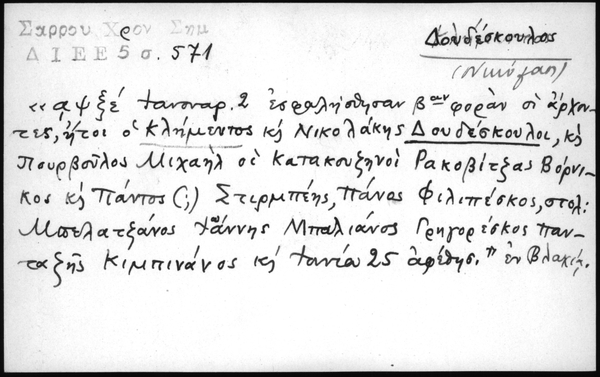 Σαρρου Χρον Σημ
Δουδέσκουλος
ΔΙΕΕ 5 σ. 571
(Νικόλαος)
«αψξέ Ιανουαρ. 2 ἐσφαλήσθησαν βαν φορὰν οἱ ἄρχον-
τες, ἤτοι ὁ Κλήμεντος κὴ Νικολάκης Δουδέσκουλοι, κὴ
Πουρβοῦλος Μιχαὴλ οἱ Κατακουζηνοὶ Ρακοβίτζας Βόρνι-
κος κὴ Πάντος (;) Στιρμπέης, Πάνας Φιλιπέσκος, στολ:
Μπελατζάνος Ἰωάννης Μπαλιάνος Γρηγορέσκος Παν-
ταζῆς Κιμπινάνος κὴ Ιανία 25 ἀφέθησ." ἐν Βλαχίᾳ.